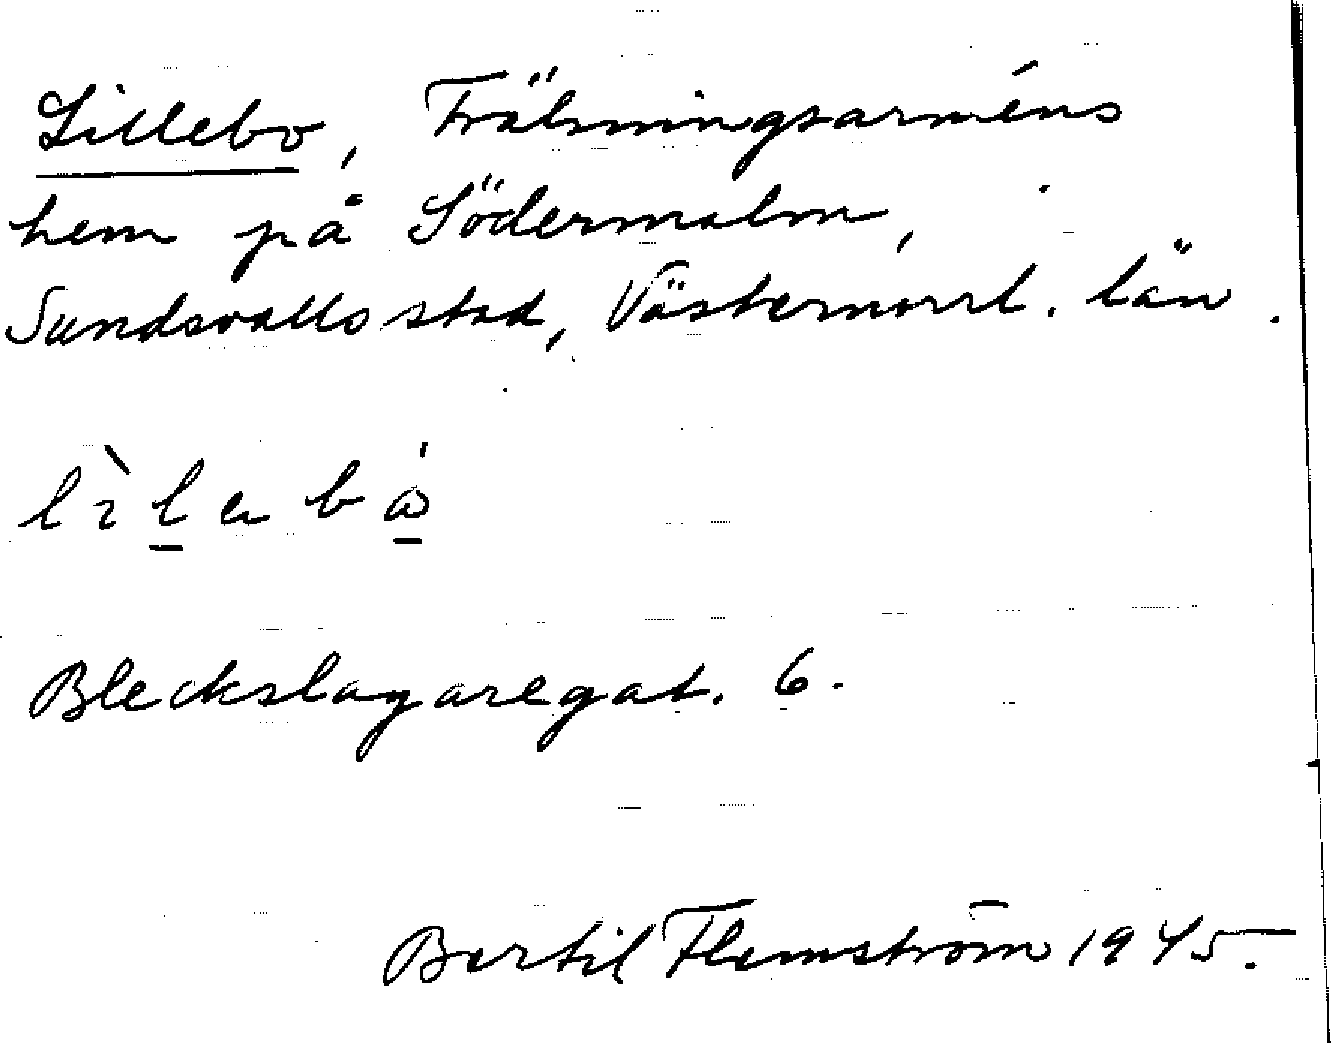 Lillebo, Frälsningsarméns
hem på Södermalm,
Sundsvalls stad, Västernorrl. län.
Bleckslagaregat. 6.
Bertil Flemström 1945.